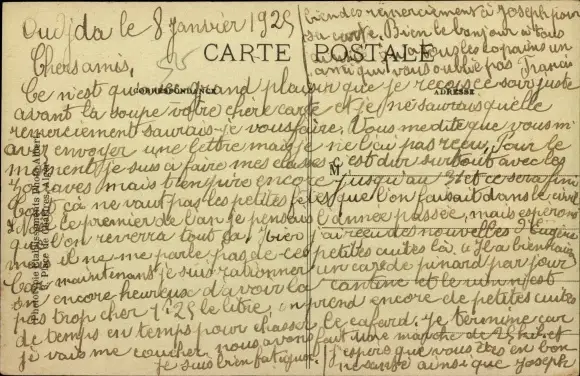 Oudjda le 8 Janvier 1925
CARTE POSTALE
CORRESPONDANCE
ADRESSE
Chers amis,
Ce n'est qu'avec grand plaisir que je reçus ce soir juste
avant la soupe votre chere carte et je ne saurais quelle
remerciement saurais-je vous faire. Vous me dite que vous m'
avez envoyer une lettre mais je ne l'ai pas reçu. Pour le
moment je suis a faire mes classes c'est dur surtout avec les
Zouaves mais bien pire encore jusqu'au et ce sera fini
Car çà ne vaut pas les petites fêtes que l'on faisait dans le civil
le premier de l'an je pensais l'année passée, mais esperons
que l'on reverra tout ça. Hier j'ai reçu des nouvelles d'Eugène
mais il ne me parle pas de ces petites cuites là. a bien
Car maintenant je suis rationner un care de pinard par jour
encore heureux d'avoir la cantine et le vin n'est
pas trop cher 1.25 le litre, on prend encore de petites cuites
de temps en temps pour chasser le cafard. Je termine car
je vais me coucher nous avons fait une marche de
je suis bien fatiguer. J'espère que vous êtes en bon
ne santé ainsi que Joseph
bien des remerciement à Joseph pour
sa carte. Bien le bonjour a tous
copains un
ami qui vous oublie pas Francis
M